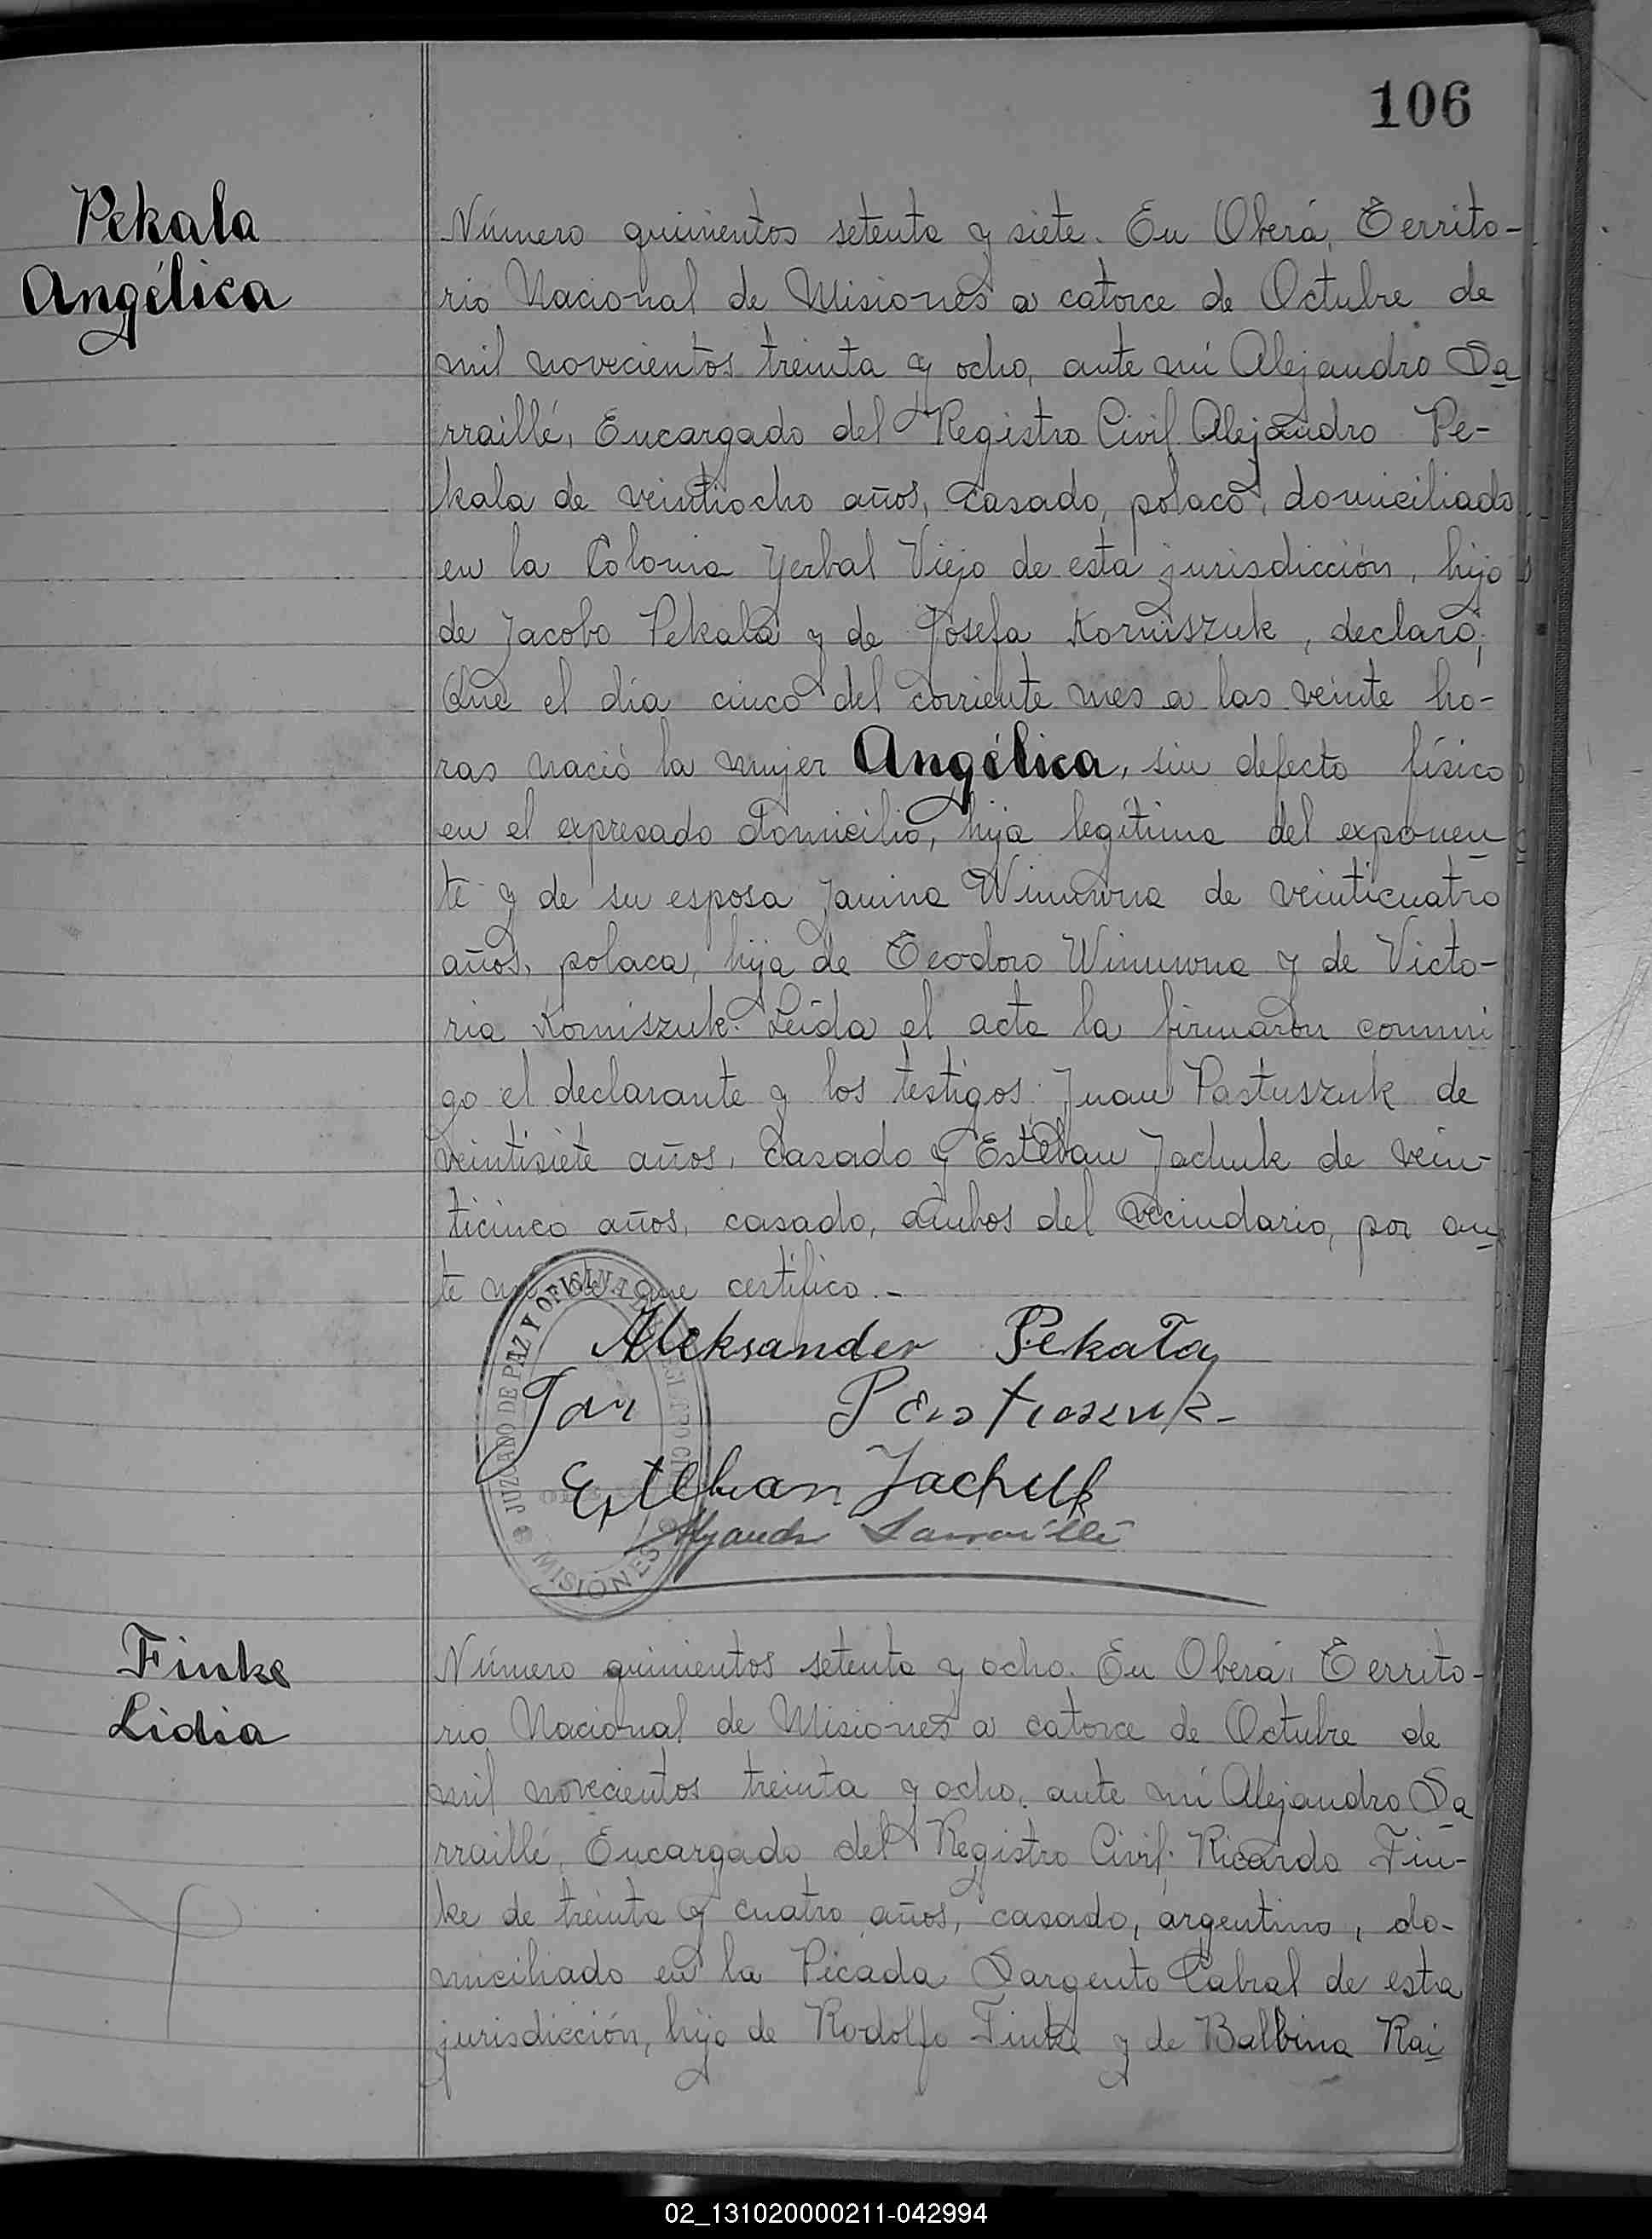 106
Pekala
Angélica
Número quinientos setenta y siete. En Oberá, Territo-
rio Nacional de Misiones a catorce de Octubre de
mil novecientos treinta y ocho, ante mí Alejandro Sa
rraillé, Encargado del Registro Civil Alejandro Pe-
kala de veintiocho años, casado, polaco, domiciliado
en la Colonia Yerbal Viejo de esta jurisdicción, hijo
de Jacobo Pekala y de Josefa Korniszuk, declaró;
Que el día cinco del corriente mes a las veinte ho-
ras nació la mujer Angélica, sin defecto físico
en el expresado domicilio, hija legítima del exponen
te y de su esposa Janina de veinticuatro
años, polaca, hija de Teodoro y de Victo-
ria Korniszuk. Leída el acta la firmaron conmi
go el declarante y los testigos: Juan Pastuszuk de
veintisiete años, casado y Esteban Jachuk de vein-
ticinco años, casado, ambos del vecindario, por an
te mí de que certifico.-
Aleksander Pekała
Jan Pastuszuk-
Esteban Jachuk
Alejandro Sarraillé
JUZGADO DE PAZ Y OFICINA
MISIONES
Finke
Lidia
Número quinientos setenta y ocho. En Oberá, Territo-
rio Nacional de Misiones a catorce de Octubre de
mil novecientos treinta y ocho, ante mí Alejandro Sa
rraillé, Encargado del Registro Civil: Ricardo Fin-
ke de treinta y cuatro años, casado, argentino, do-
miciliado en la Picada Sargento Cabral de esta
jurisdicción, hijo de Rodolfo Finke y de Balbina Rai
02_131020000211-042994